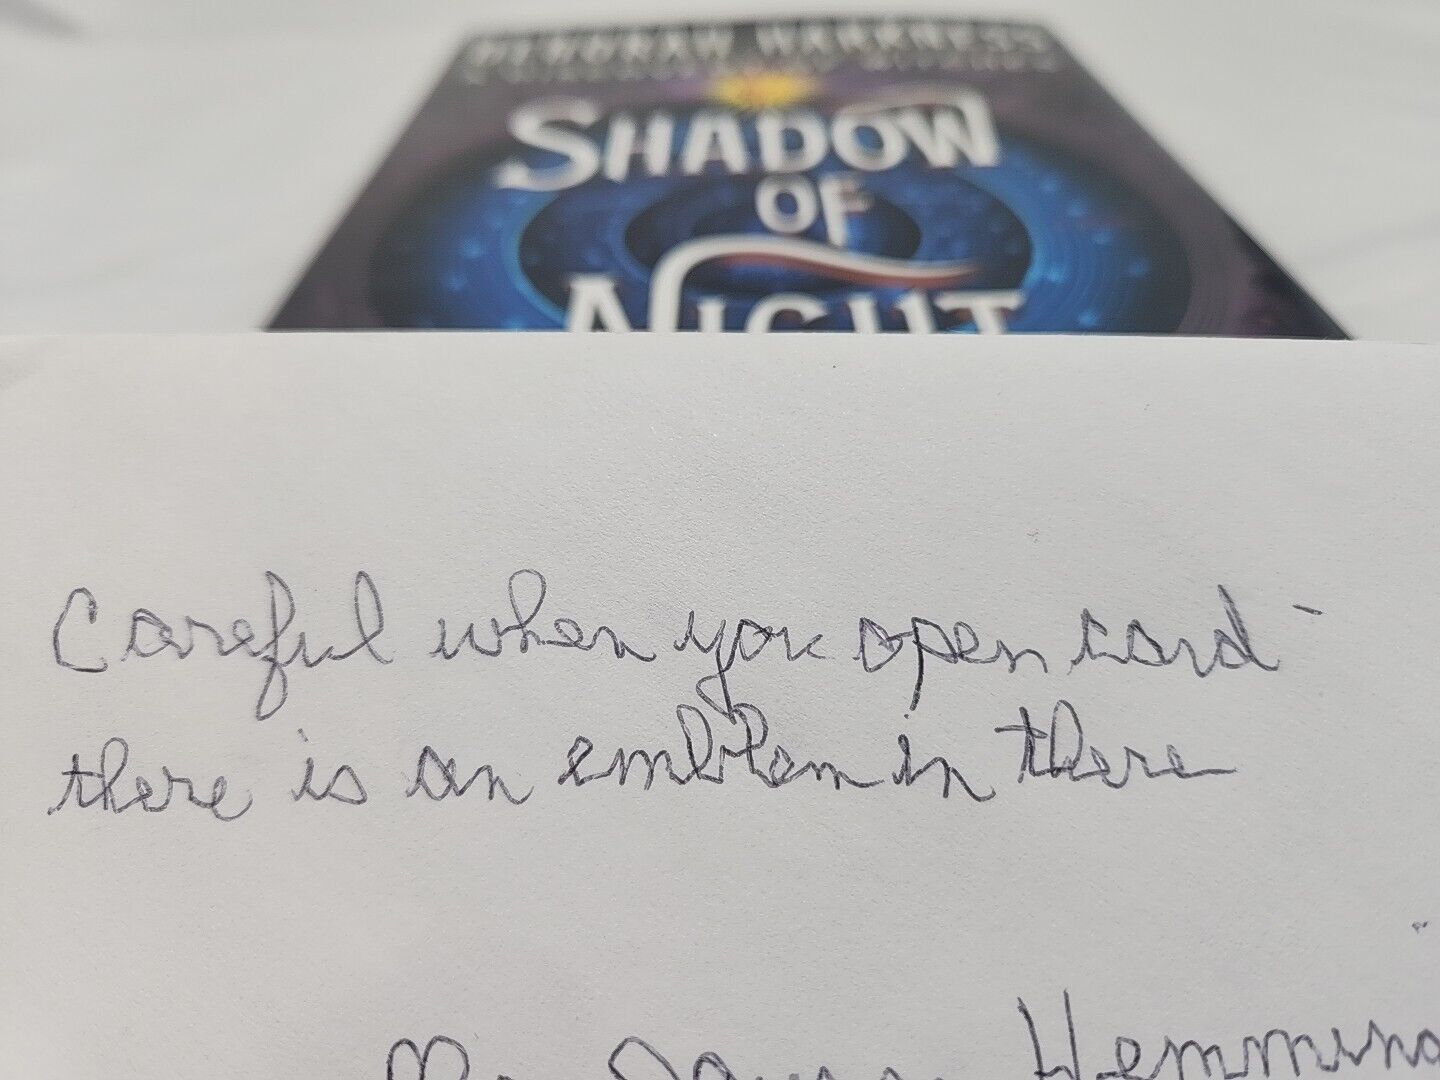 DEBORAH HARKNESS
SHADOW
OF
NIGHT
Careful when you open card -
there is an emblem in there